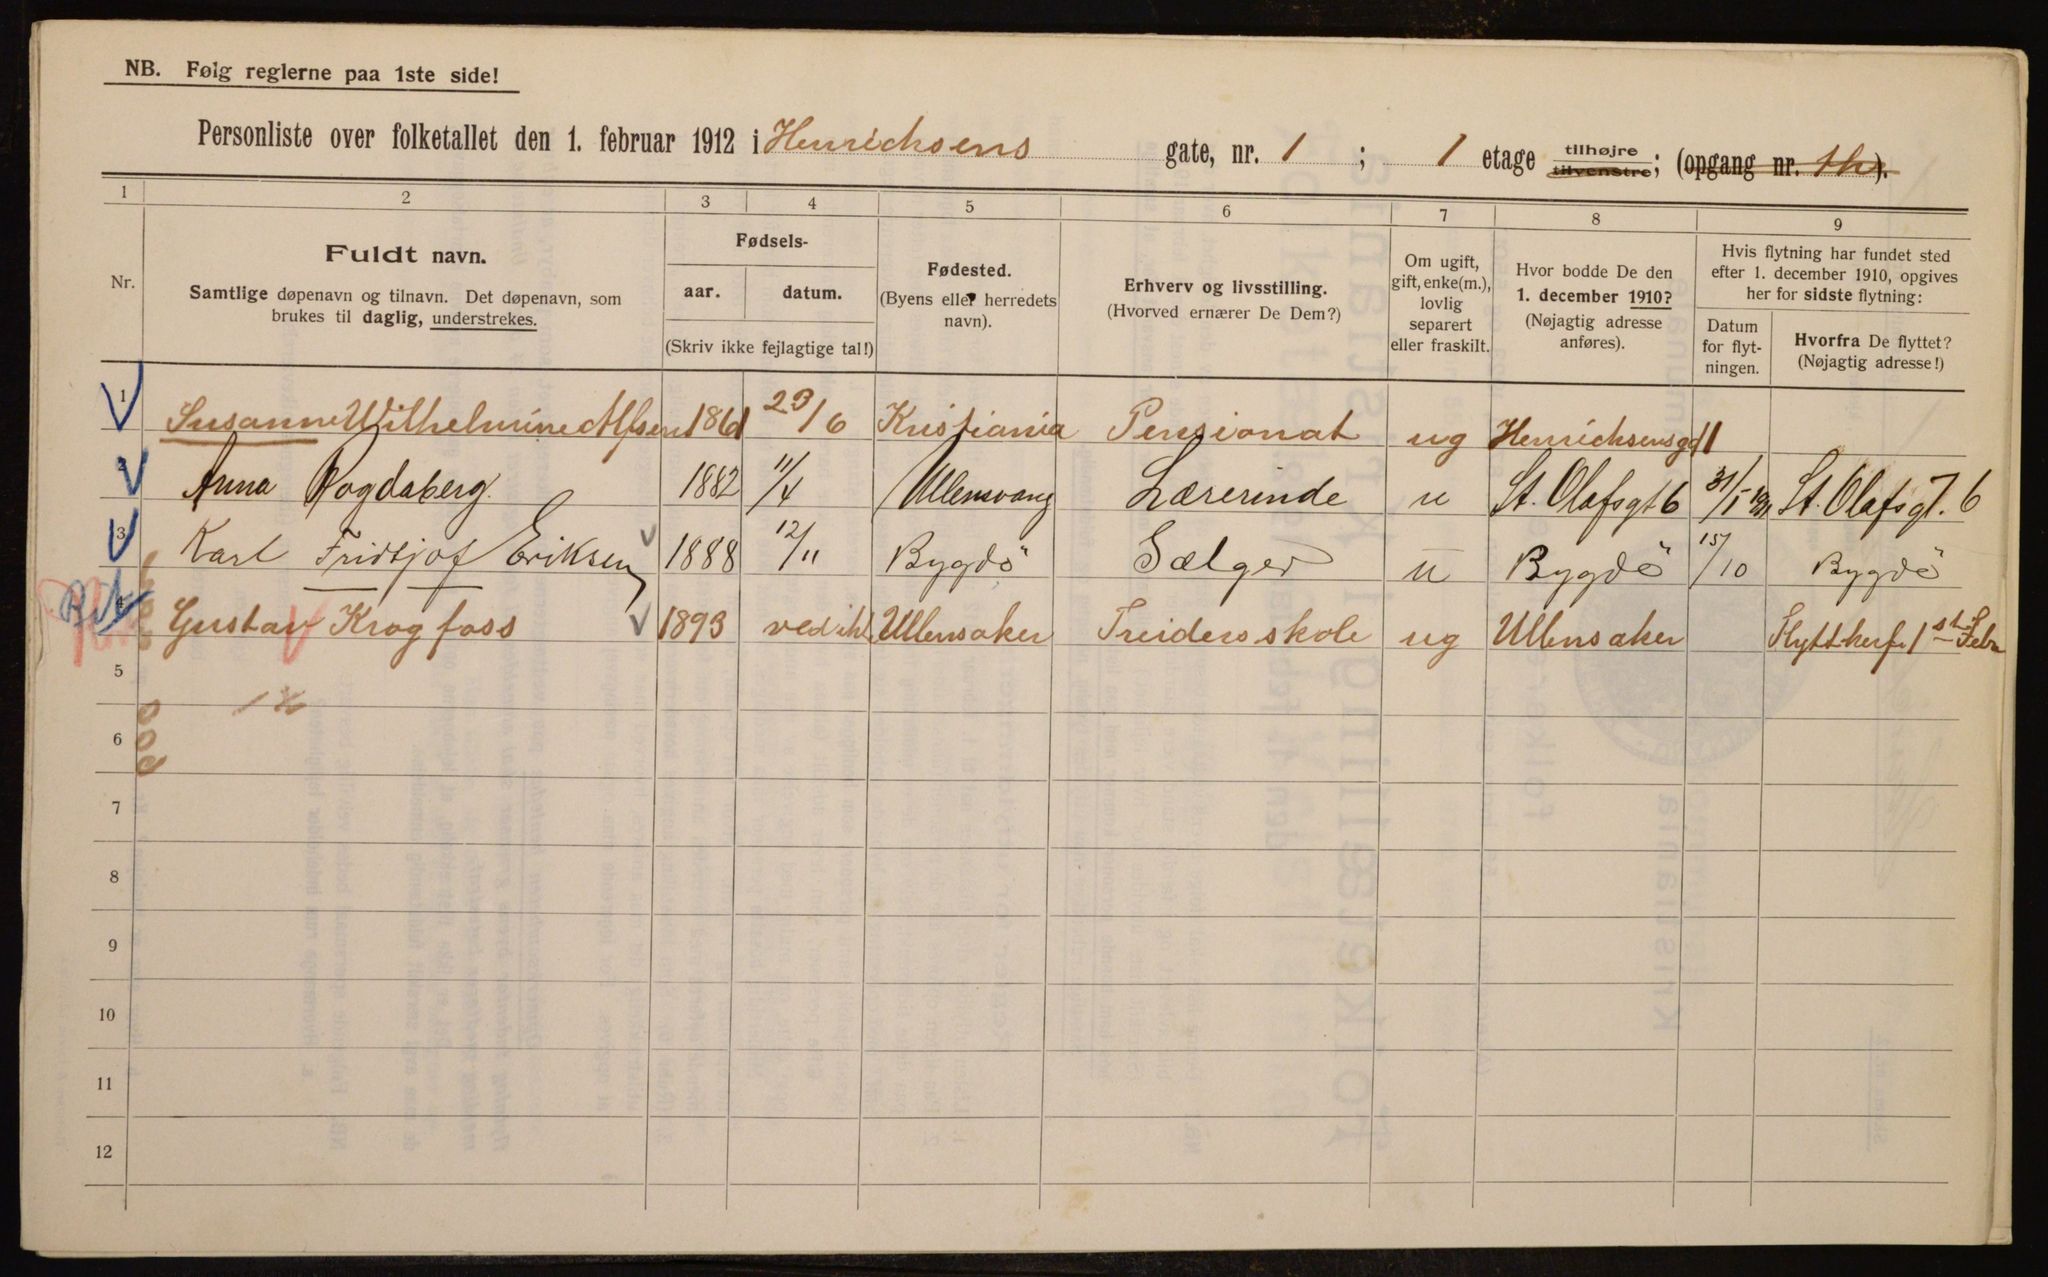 NB. Følg reglerne paa 1ste side!
Personliste over folketallet den 1. februar 1912 i Henrichsens gate, nr. 1 ; 1 etage tilhøjre tilvenstre; (opgang nr. th).
1 2 3 4 5 6 7 8 9
Nr.
Fuldt navn.
Samtlige døpenavn og tilnavn. Det døpenavn, som
brukes til daglig, understrekes.
Fødsels-
aar. datum.
(Skriv ikke fejlagtige tal!)
Fødested.
(Byens eller herredets
navn).
Erhverv og livsstilling.
(Hvorved ernærer De Dem?)
Om ugift,
gift, enke(m.),
lovlig
separert
eller fraskilt.
Hvor bodde De den
1. december 1910?
(Nøjagtig adresse
anføres).
Hvis flytning har fundet sted
efter 1. december 1910, opgives
her for sidste flytning:
Datum
for flyt-
ningen.
Hvorfra De flyttet?
(Nøjagtig adresse!)
1 Susanne Wilhelmine Alfsen 1861 23/6 Kristiania Pensionat ug Henrichsensgd 1
2 Anna Rogdaberg. 1882 11/4 Ullensvang Lærerinde u St. Olafsgt 6 31/1 St. Olafsgt. 6
3 Karl Fridtjof Eriksen 1888 12/11 Bygdö Sælger u Bygdö 15/10 Bygdö
4 Gustav Krogfoss 1893 Ullensaker Treiders skole ug Ullensaker 1st Febr
5
6
7
8
9
10
11
12